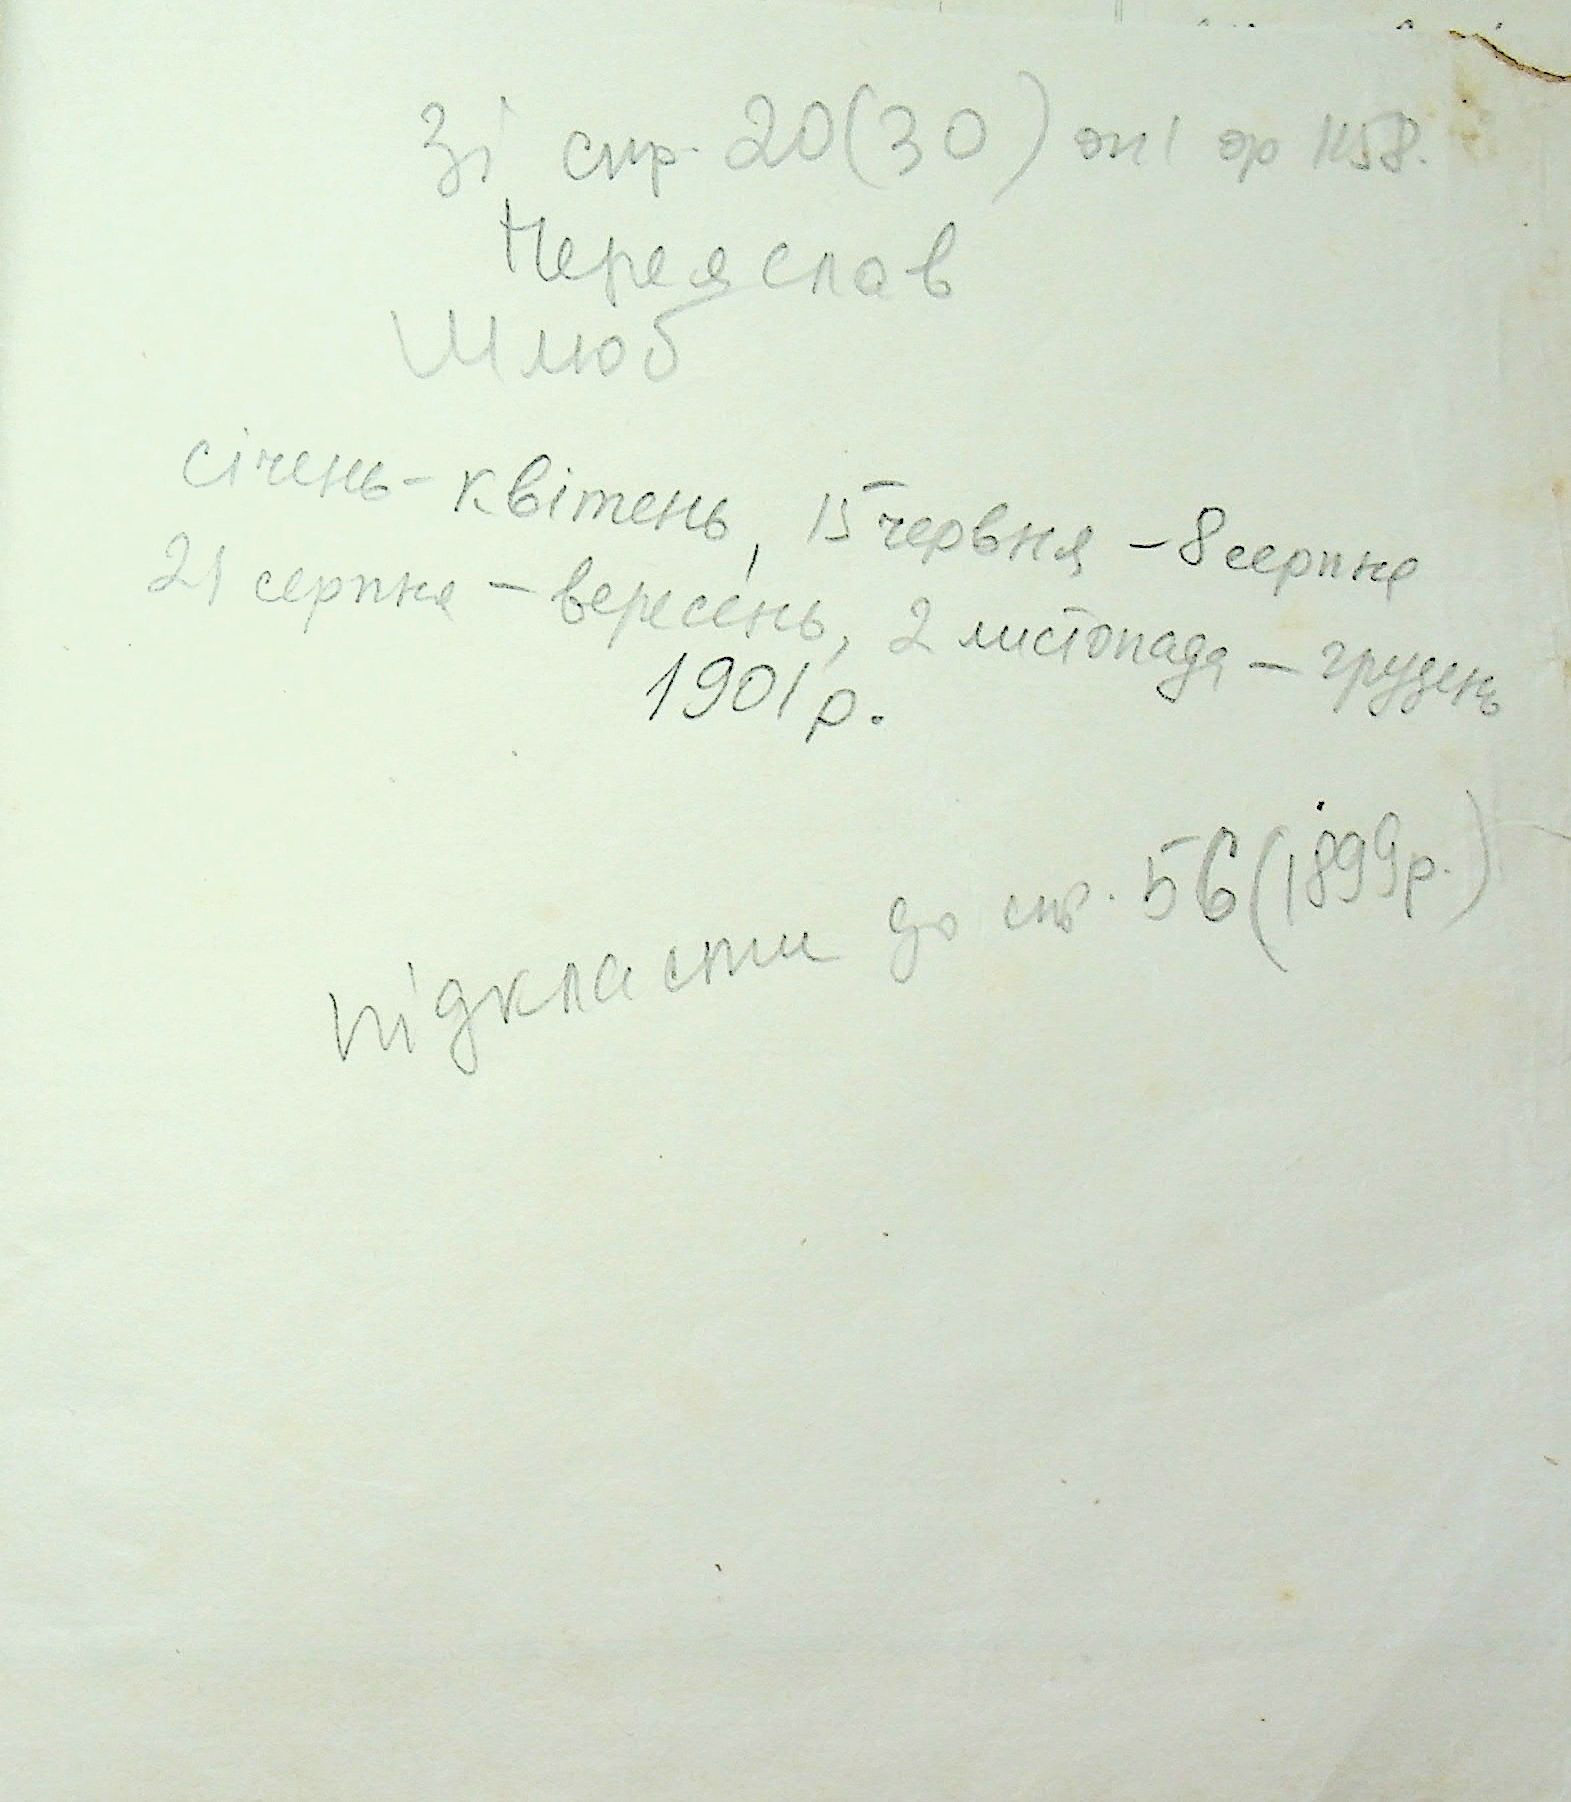 Зі спр. 20(30) оп 1 ф 1158.
Переяслав
Шлюб
січень - квітень, 15 червня - 8 серпня
21 серпня - вересень, 2 листопада - грудень
1901 р.
підкласти до спр. 56 (1899 р.)